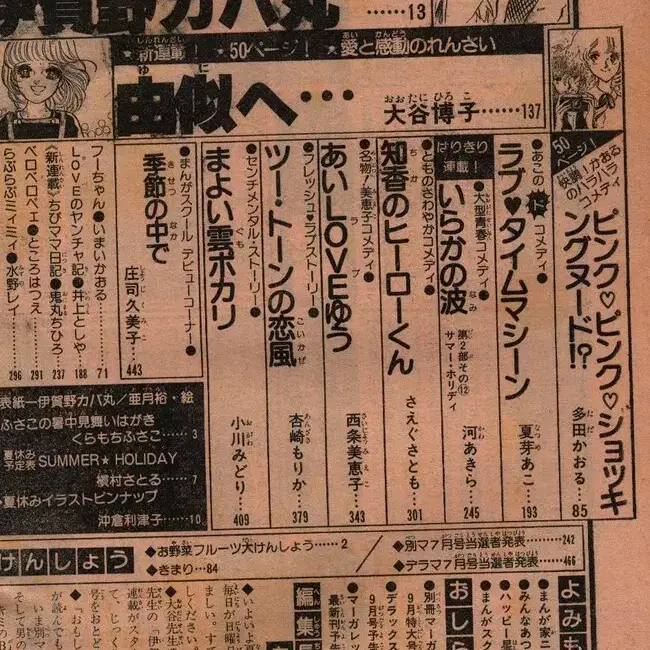 伊賀野カバ丸……13
★新連載！ ★50ページ！ ★愛と感動のれんさい
由似へ…
大谷博子……137
50ページ！
快調！かおるのハラハラコメディ
ピンク♡ピンク♡ショッキングヌード!?
多田かおる…85
●あこのドコメディ●
ラブ♥タイムマシーン
夏芽あこ…193
はりきり連載！
●大型青春コメディ●
いらかの波
第2部その⑫
サマー・ホリディ
河あきら…245
●とものさわやかコメディ●
知香のヒーローくん
さえぐさとも…301
●名物！美恵子コメディ●
あいLOVEゆう
西条美恵子…343
●フレッシュ♥ラブストーリー●
ツー・トーンの恋風
杏崎もりか…379
●センチメンタル・ストーリー●
まよい雲ポカリ
小川みどり…409
●まんがスクール デビューコーナー●
季節の中で
庄司久美子…443
フーちゃん●いまいかおる…71
LOVEのヤンチャ記●井上としや…188
《新連載》ちびママ日記●鬼丸ちひろ…237
ベロベロベェ●ところはつえ…291
らぶらぶミィミィ●水野レイ…296
表紙―伊賀野カバ丸／亜月裕・絵
ふさこの暑中見舞いはがき
くらもちふさこ……3
夏休み予定表 SUMMER★HOLIDAY
槇村さとる……7
夏休みイラストピンナップ
沖倉利津子……10
けんしょう
◆お野菜フルーツ大けんしょう……2
◆きまり…84
◆別マ7月号当選者発表……242
◆デラマ7月号当選者発表……466
よみも
●まんが家ニ
●みんなあつ
●ハッピー星
●まんがスク
おしら
●別冊マーガ
9月特大号
●デラックス
9月号予告
●マーガレッ
最新刊予告
編集